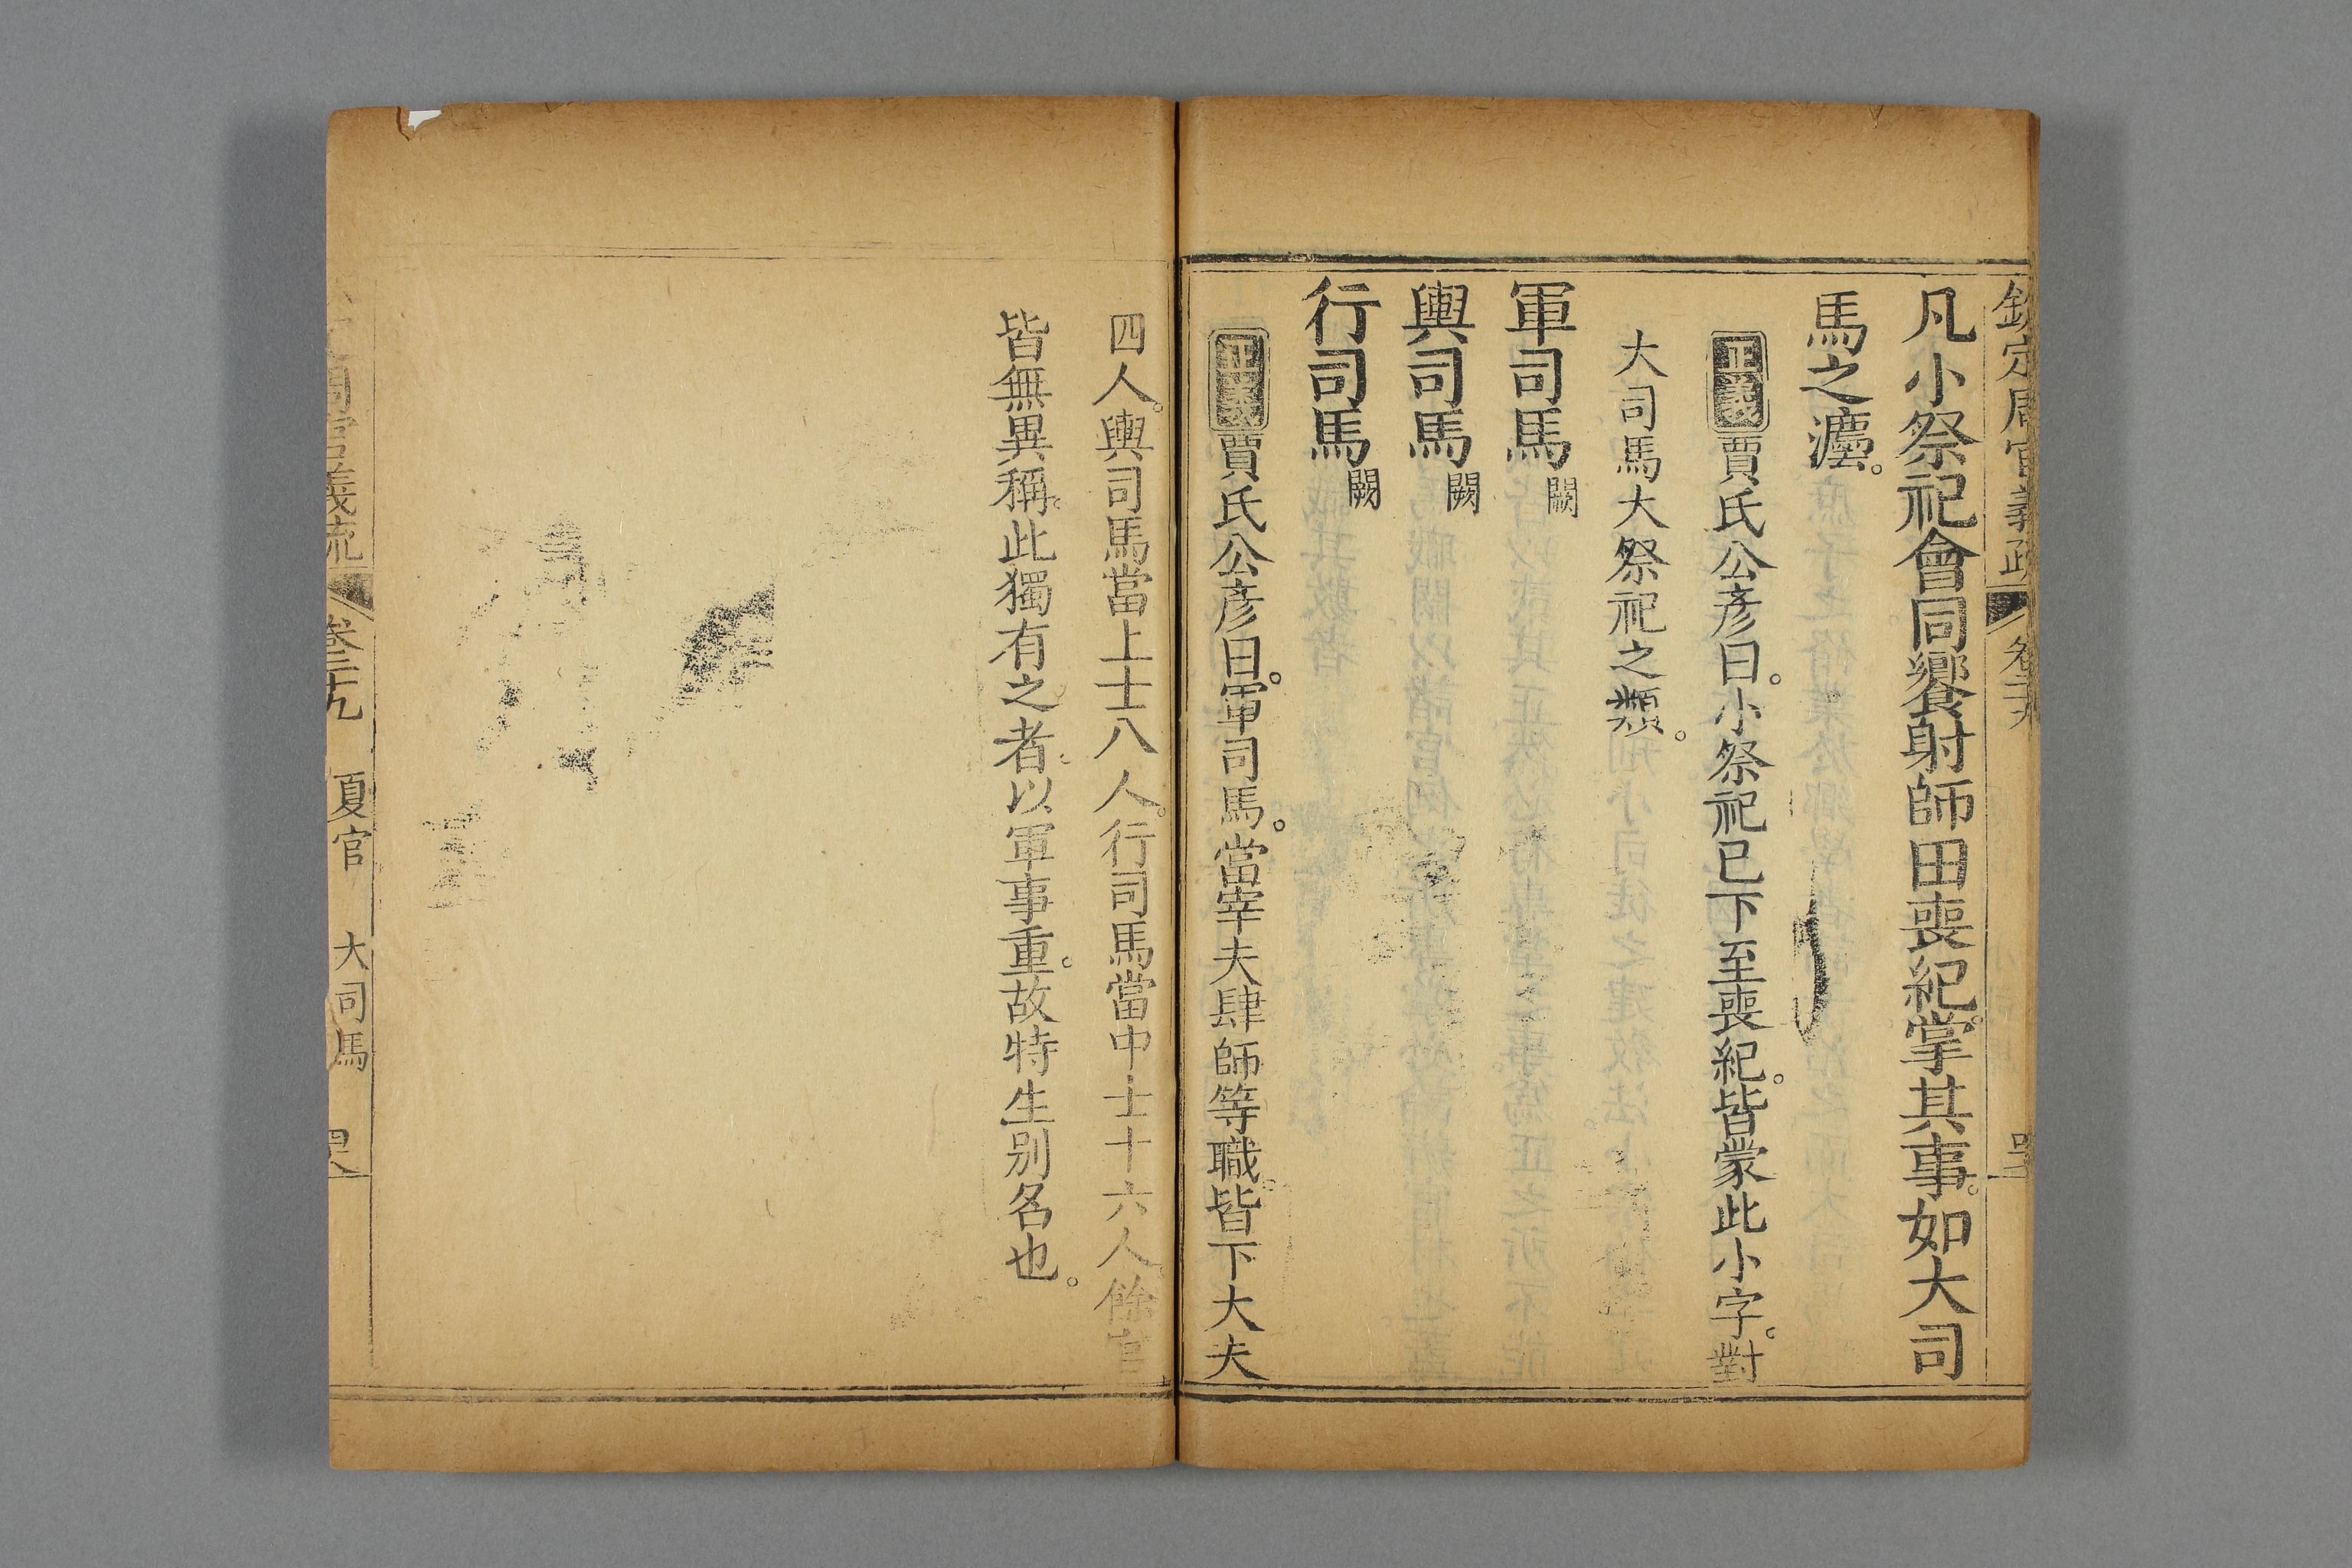 欽定周官義疏 卷二十九
凡小祭祀會同饗射師田喪紀掌其事。如大司
馬之灋。
正義賈氏公彥曰。小祭祀已下至喪紀。皆蒙此小字。對
大司馬大祭祀之類。
軍司馬闕
輿司馬闕
行司馬闕
正義賈氏公彥曰。軍司馬。當宰夫肆師等職。皆下大夫
四人。輿司馬當上士八人。行司馬當中士十六人。餘官
皆無異稱。此獨有之者。以軍事重。故特生别名也。
周官義疏 卷二十九 夏官 大司馬